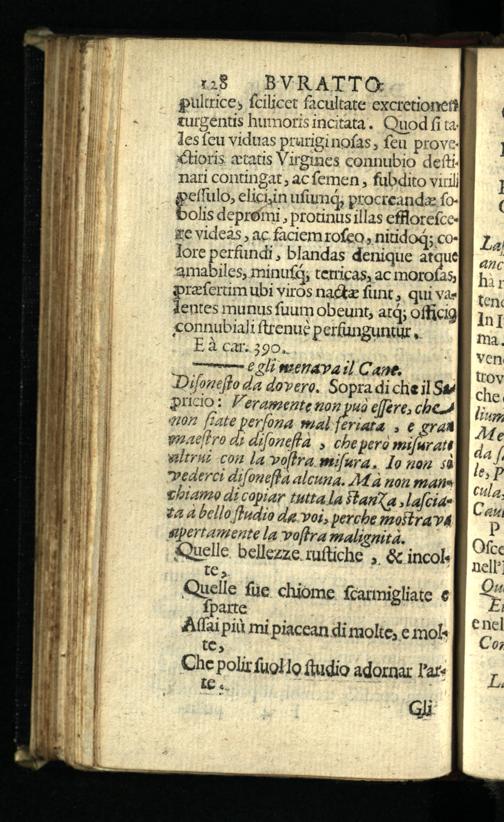 128 BVRATTO
pultrice, scilicet facultate excretionem
turgentis humoris incitata. Quod si ta-
les seu viduas pruriginosas, seu prove-
ctioris ætatis Virgines connubio desti-
nari contingat, ac semen, subdito virili
pessulo, elici, in usumq́, procreandæ so-
bolis depromi, protinus illas effloresce-
re videas, ac faciem roseo, nitidoq; co-
lore perfundi, blandas denique atque
amabiles, minusq́; tetricas, ac morosas,
præsertim ubi viros nactæ sunt, qui va-
lentes munus suum obeunt, atq; officio
connubiali strenuè perfunguntur.
E à car. 390.
e gli menava il Cane.
Disonesto da dovero. Sopra di che il Sa-
pricio: Veramente non può essere, che
non siate persona mal feriata, e gran
maestro di disonestà, che però misurate
altrui con la vostra misura. Io non sò
vederci disonestà alcuna. Mà non man-
chiamo di copiar tutta la stanza, lascia-
ta à bello studio da voi, perche mostrava
apertamente la vostra malignità.
Quelle bellezze rustiche, & incol-
te,
Quelle sue chiome scarmigliate e
sparte
Assai più mi piacean di molte, e mol-
te,
Che polir suol lo studio adornar l'ar-
te.
Gli